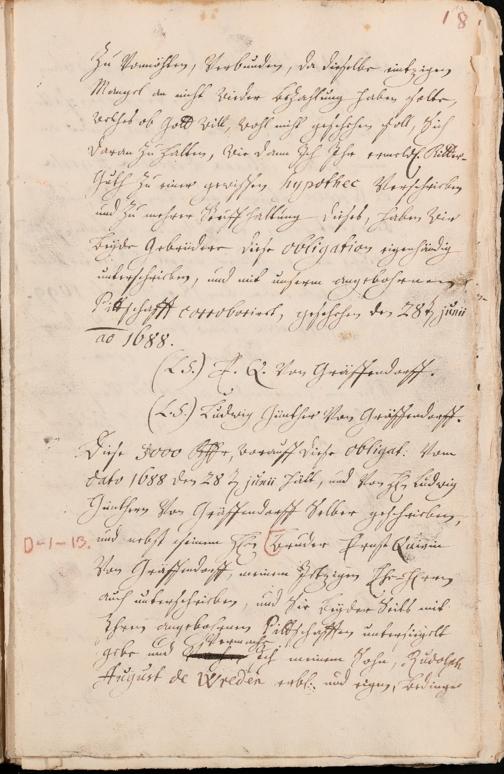 18.
Zu Vermöhlen, Verbunden, da dieselbe eintzigen
Mangel an nicht wieder bezahlung haben solte,
welches ob Gott will, wohl nicht geschehen soll, sich
daran zu halten, wie dann Ich Ihr ermeld. Ritter-
Guth zu einer gewissen hypothec Verschrieben
und zu mehrer haltung dieses, haben wir
beyde Gebrüdere diese obligation eigenhändig
unterschrieben, und mit unserm angebohrnen
Pittschafft corroborirt, geschehen den 28t junii
ao 1688.
(L.S.) E. Q. Von Gräffendorff.
(L.S.) Ludwig Günther Von Gräffendorff.
Diese 3000 worauff diese obligat: Vom
dato 1688 den 28t junii hält, und von H. Ludwig
Günthern Von Gräffendorff Selber geschrieben,
D-1-13. und nebst seinem H. Bruder Ernst Quirin
Von Gräffendorff, meinem itzigen Ehe-Herrn
auch unterschrieben, und Sie beyder Seits mit
Ihren angebohrnen Pittschafften untersiegelt
gebe und Vermache ich meinem Sohn, Rudolph
August de Wreden erbl: und eigen, bedinge